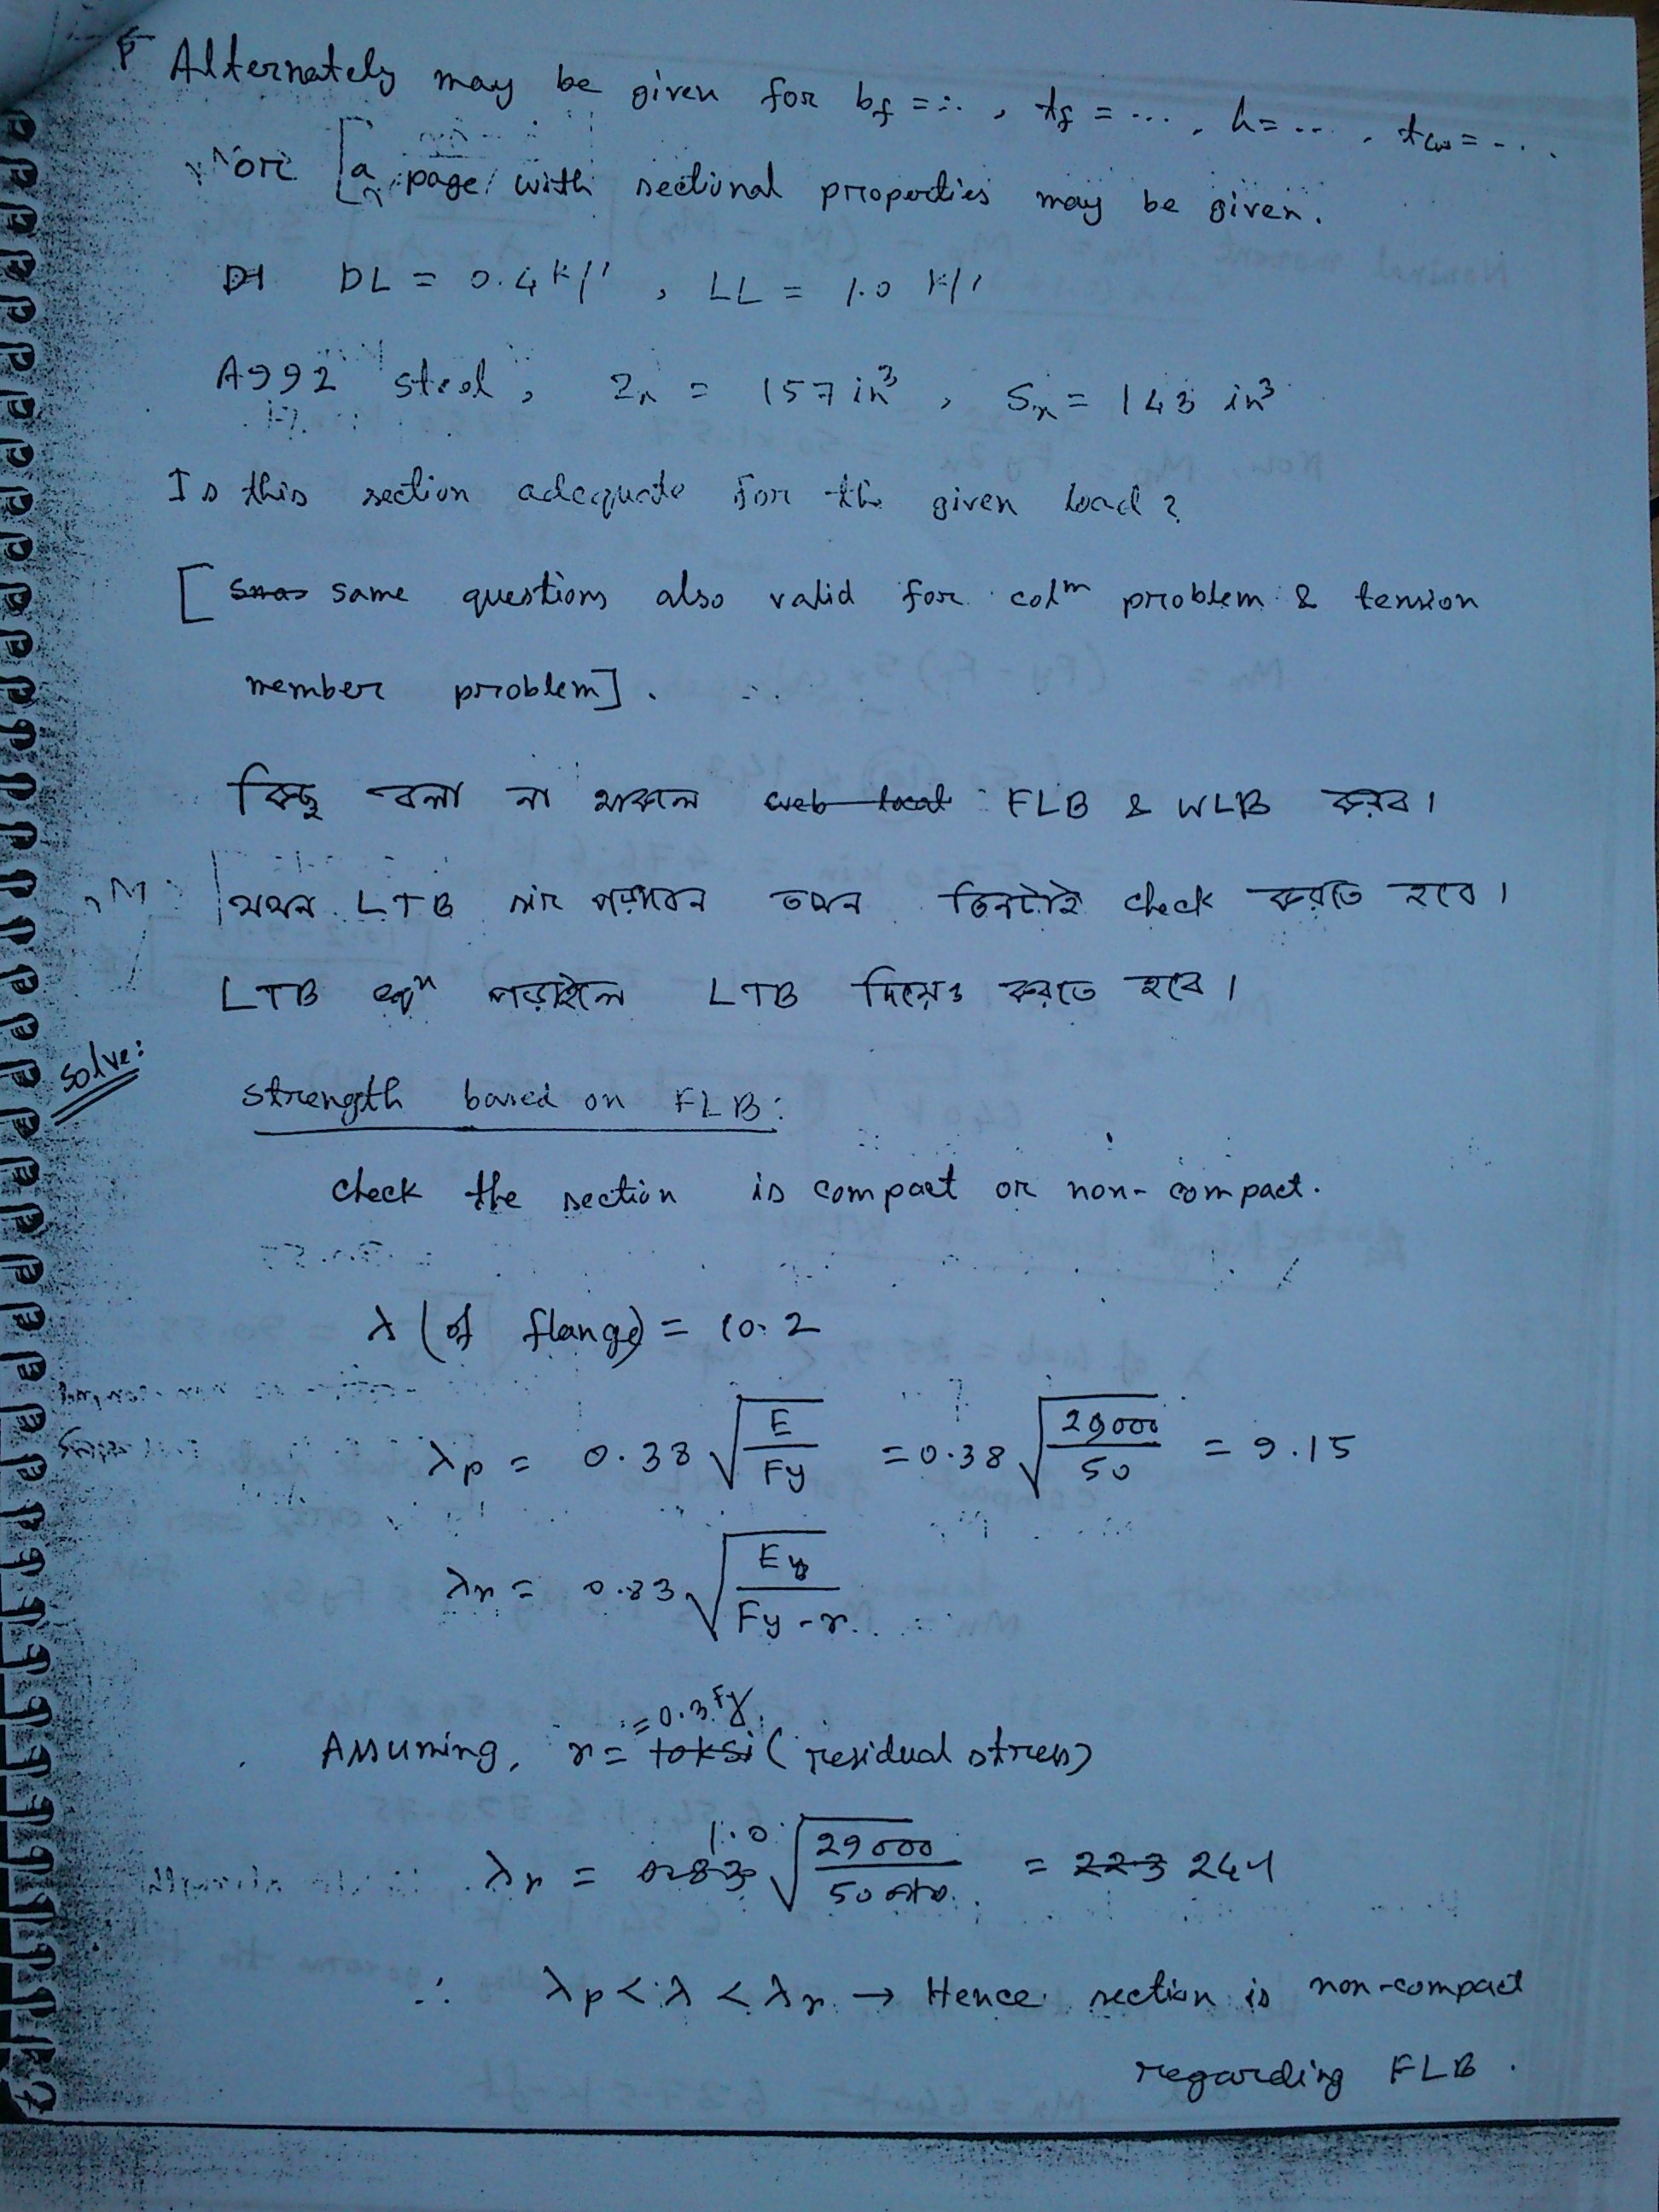 Alternately may be given for bf = ... , tf = ... , h = ... , tw = ...
[a page with sectional properties may be given.
DL = 0.4 k/' , LL = 1.0 k/'
A992 steel, Zx = 157 in³ , Sx = 143 in³
Is this section adequate for the given load?
[ same questions also valid for colm problem & tension
member problem].
কিছু বলা না থাকলে web local FLB & WLB করব।
যখন LTB তখন তিনটাই check করতে হবে।
LTB eqn পড়াইলে LTB দিয়েও করতে হবে।
Solve:
strength based on FLB:
check the section is compact or non-compact.
λ (of flange) = 10.2
λp = 0.38 √(E/Fy) = 0.38 √(29000/50) = 9.15
λr = 0.83 √(Ey/(Fy - r))
= 0.3 Fy
Assuming, r = 10 ksi (residual stress)
1.0
λr = 0.83 √(29000/50) = 223 241
∴ λp < λ < λr → Hence section is non-compact
regarding FLB.